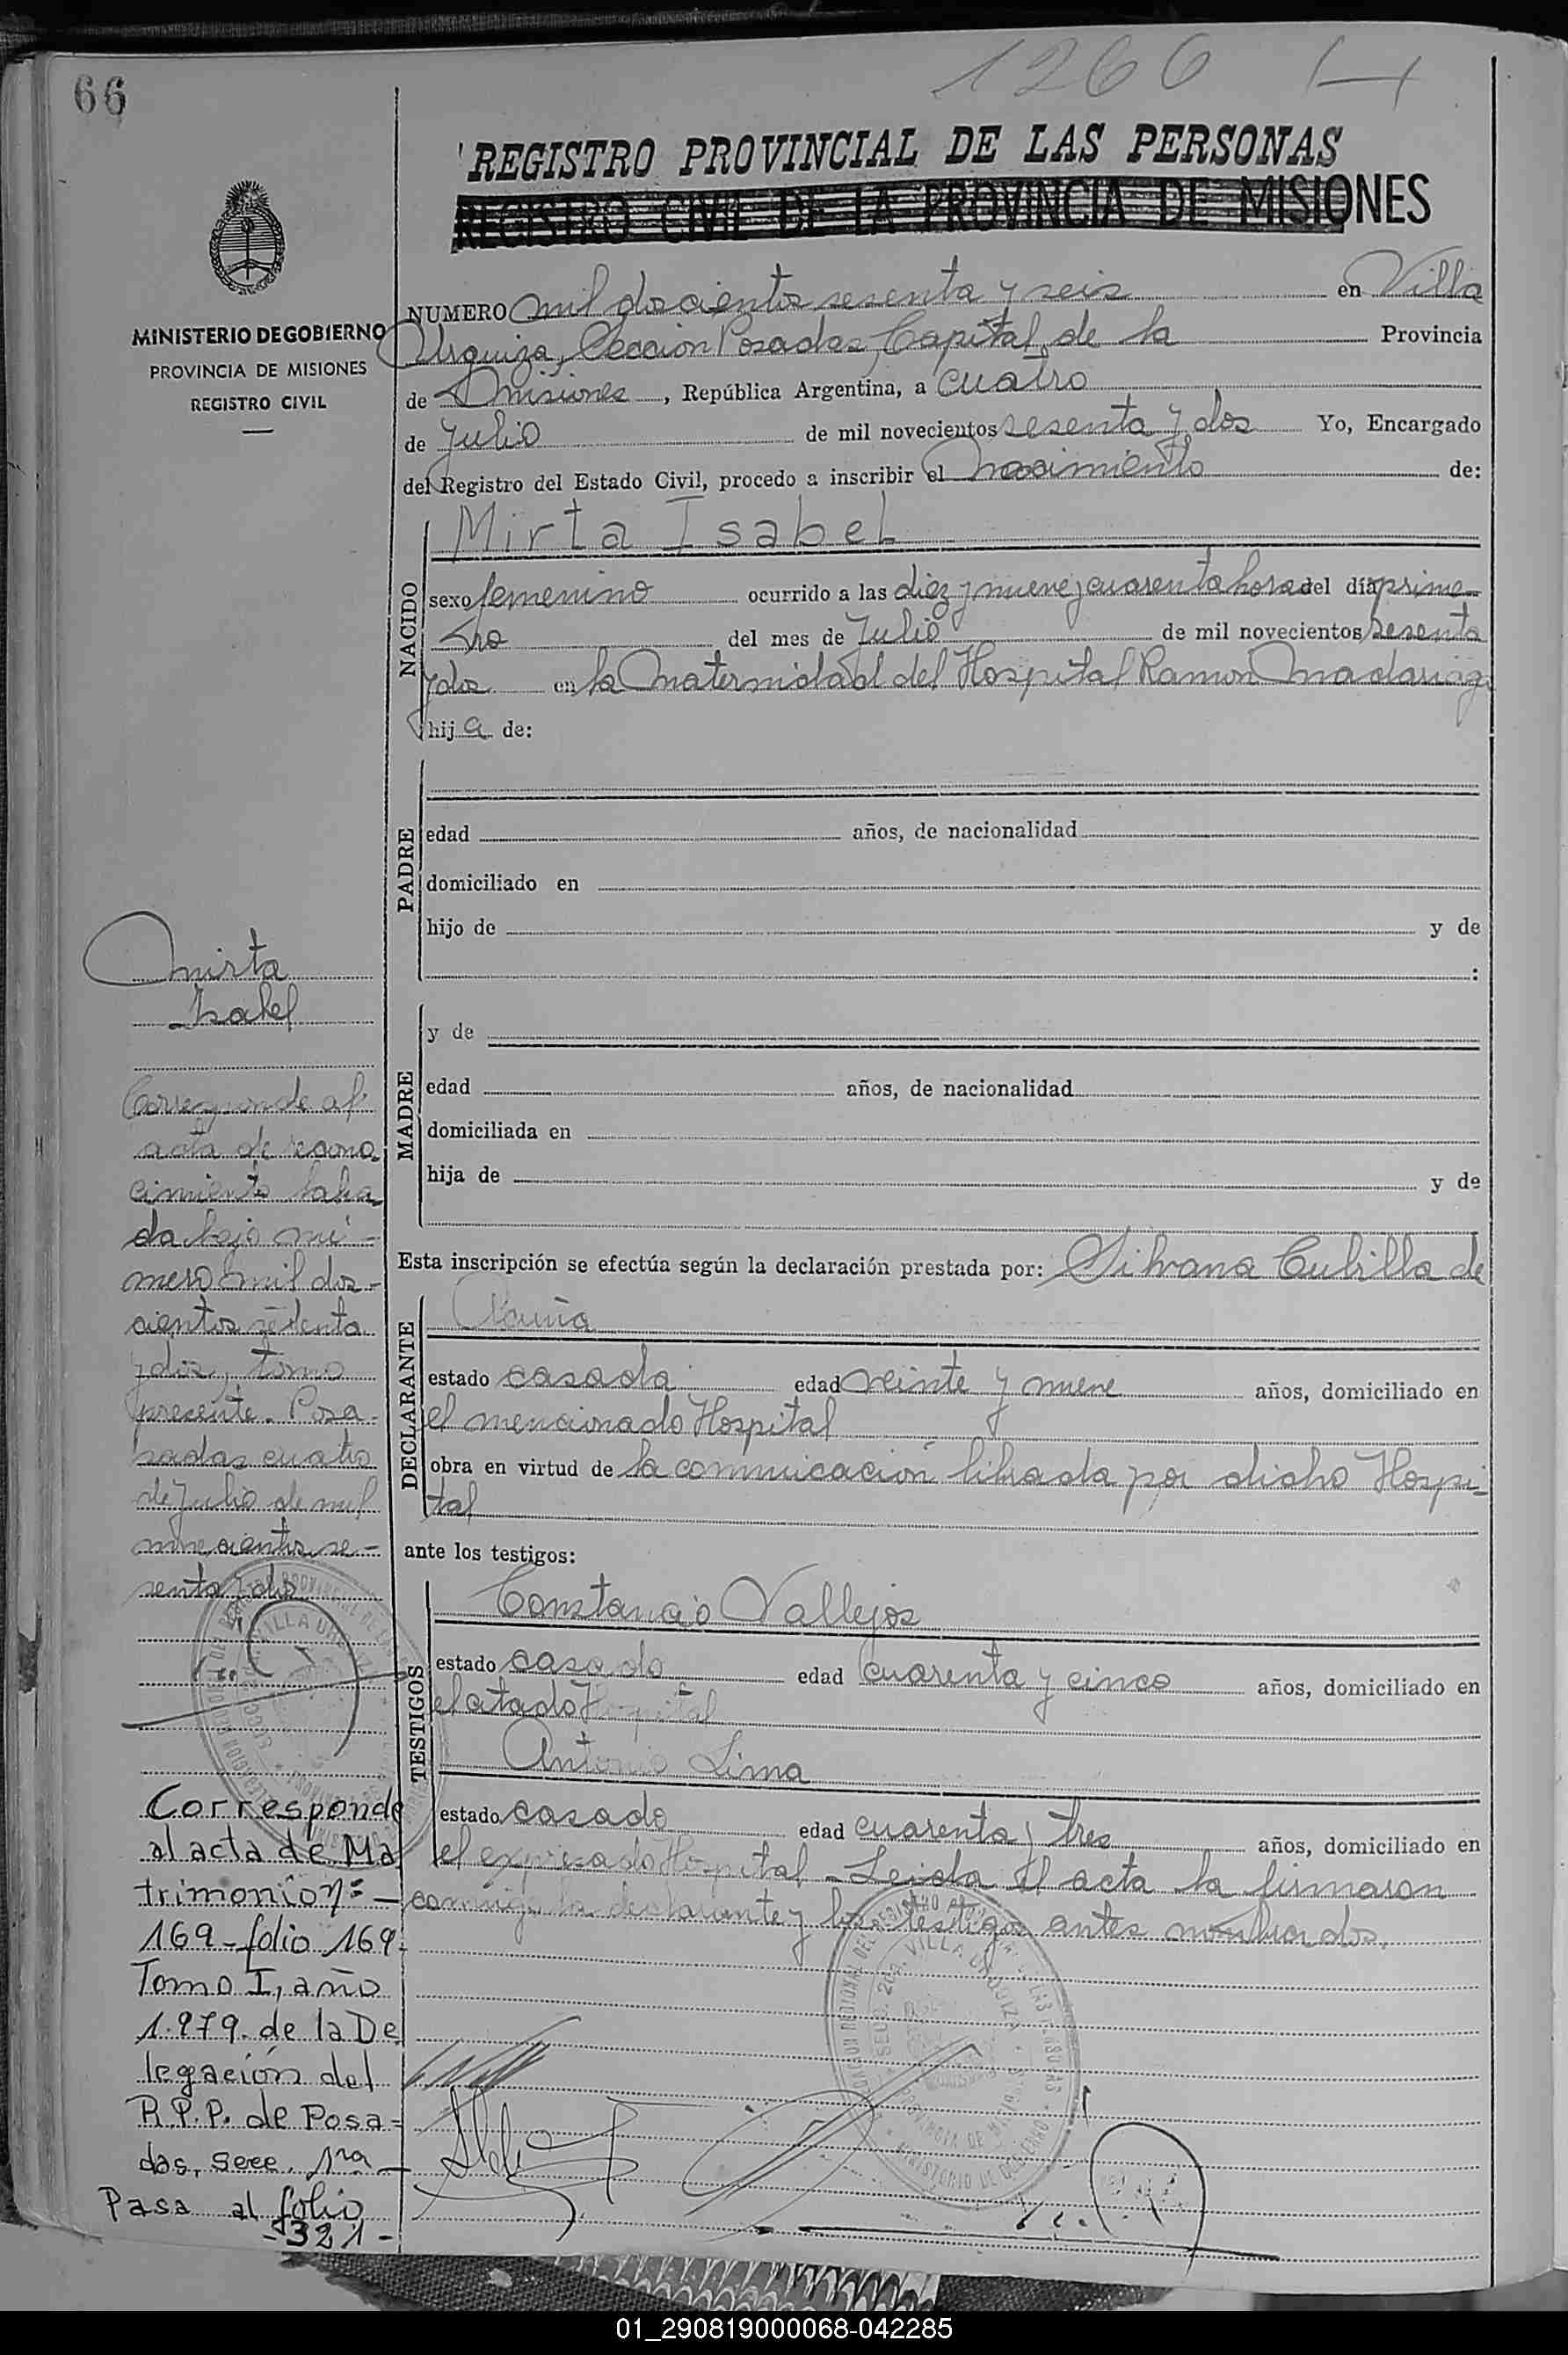 66
1266
REGISTRO PROVINCIAL DE LAS PERSONAS
REGISTRO CIVIL DE LA PROVINCIA DE MISIONES
MINISTERIO DE GOBIERNO
PROVINCIA DE MISIONES
REGISTRO CIVIL
NUMERO mil doscientos sesenta y seis en Villa
Urquiza, Sección Posadas, Capital de la Provincia
de Misiones, República Argentina, a cuatro
de Julio de mil novecientos sesenta y dos Yo, Encargado
del Registro del Estado Civil, procedo a inscribir el nacimiento de:
NACIDO
Mirta Isabel
sexo femenino ocurrido a las diez y nueve y cuarenta horas del día prime-
ro del mes de Julio de mil novecientos sesenta
y dos en la Maternidad del Hospital Ramon Madariaga
hija de:
PADRE
edad años, de nacionalidad
domiciliado en
hijo de y de
:
MADRE
y de
edad años, de nacionalidad
domiciliada en
hija de y de
Esta inscripción se efectúa según la declaración prestada por: Silvana Cubilla de
DECLARANTE
estado casada edad veinte y nueve años, domiciliado en
el mencionado Hospital
obra en virtud de la comunicación librada por dicho Hospi-
tal
ante los testigos:
TESTIGOS
Constancio Vallejos
estado casado edad cuarenta y cinco años, domiciliado en
el citado Hospital
Antonio Lima
estado casado edad cuarenta y tres años, domiciliado en
el expresado Hospital - Leida el acta la firmaron
conmigo la declarante y los testigos antes nombrados.
Mirta
Isabel
Corresponde al
acta de recono
cimiento labra
da bajo nú-
mero mil dos-
cientos setenta
y dos, tomo
presente. Posa-
sadas cuatro
de Julio de mil
novecientos se-
senta y dos
Corresponde
al acta de Ma
trimonio nº -
169 - folio 169.
Tomo I, año
1.979. de la De
legación del
R.P.P. de Posa-
das, Secc. 1ra
Pasa al folio
- 321 -
01_290819000068-042285